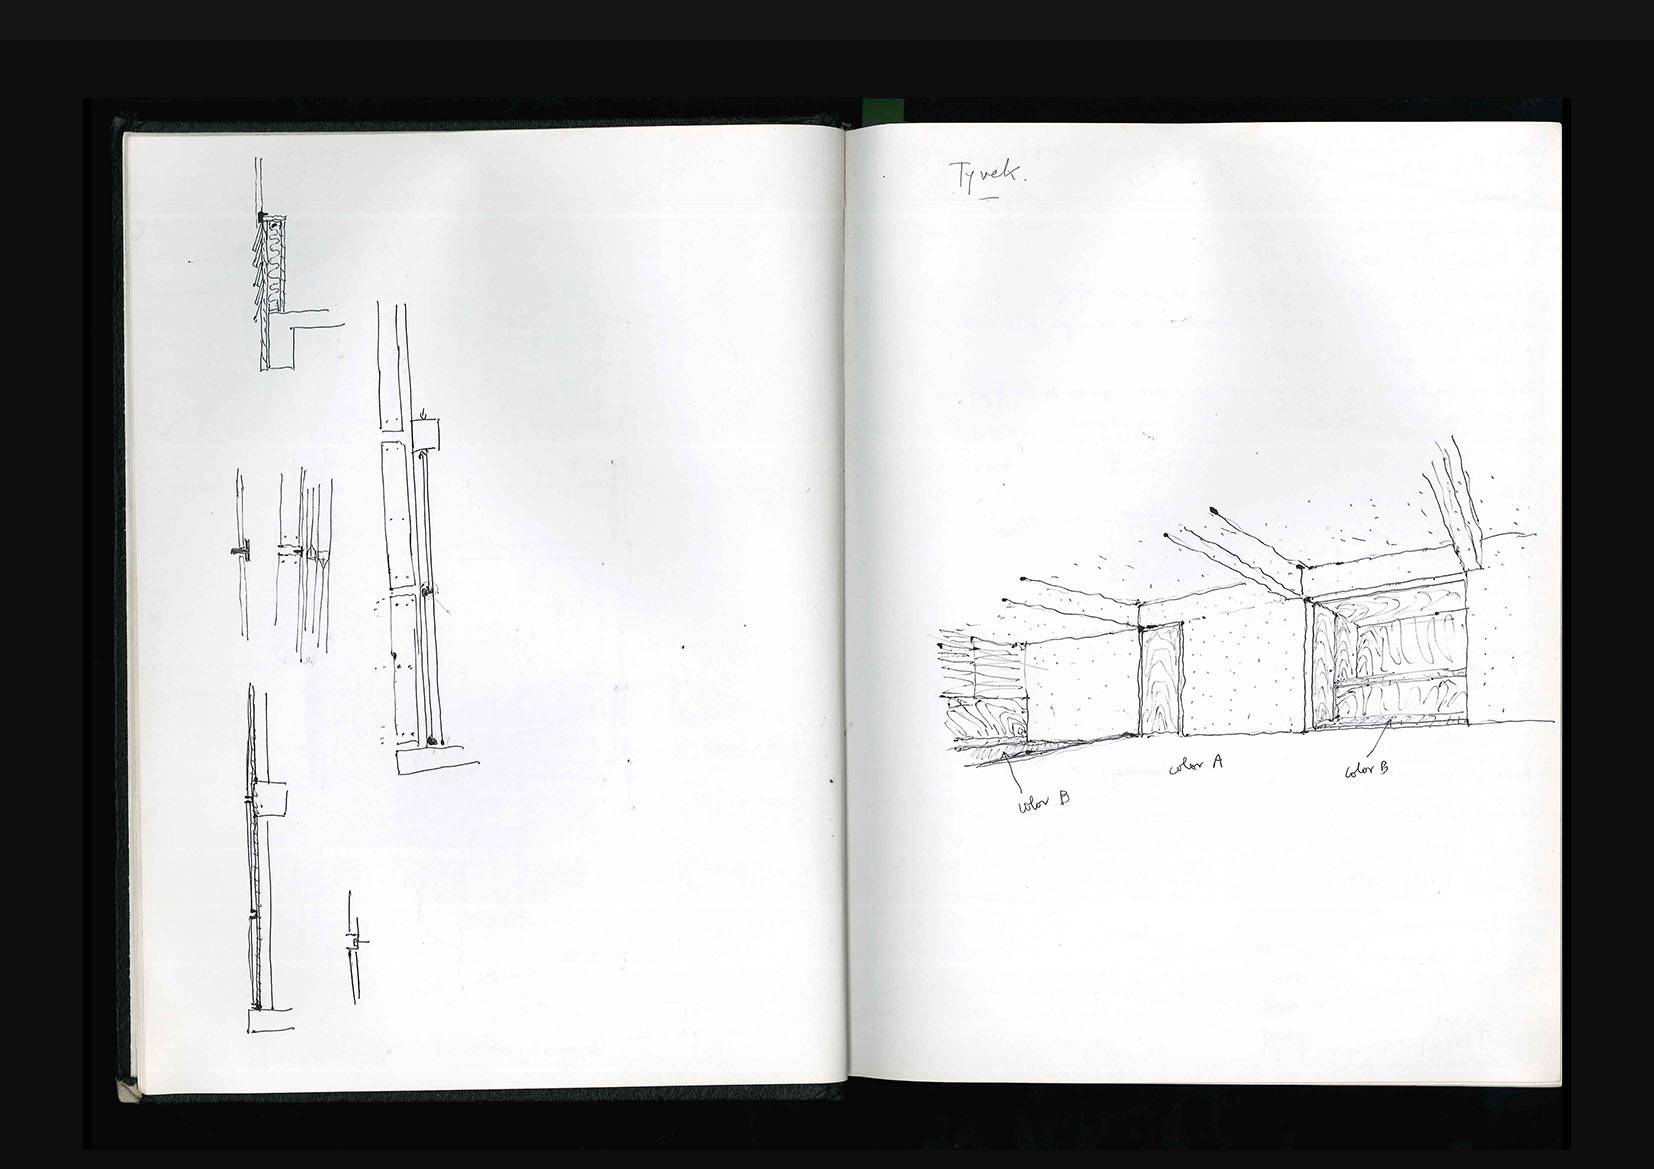 Tyvek.
color A
color B
color B